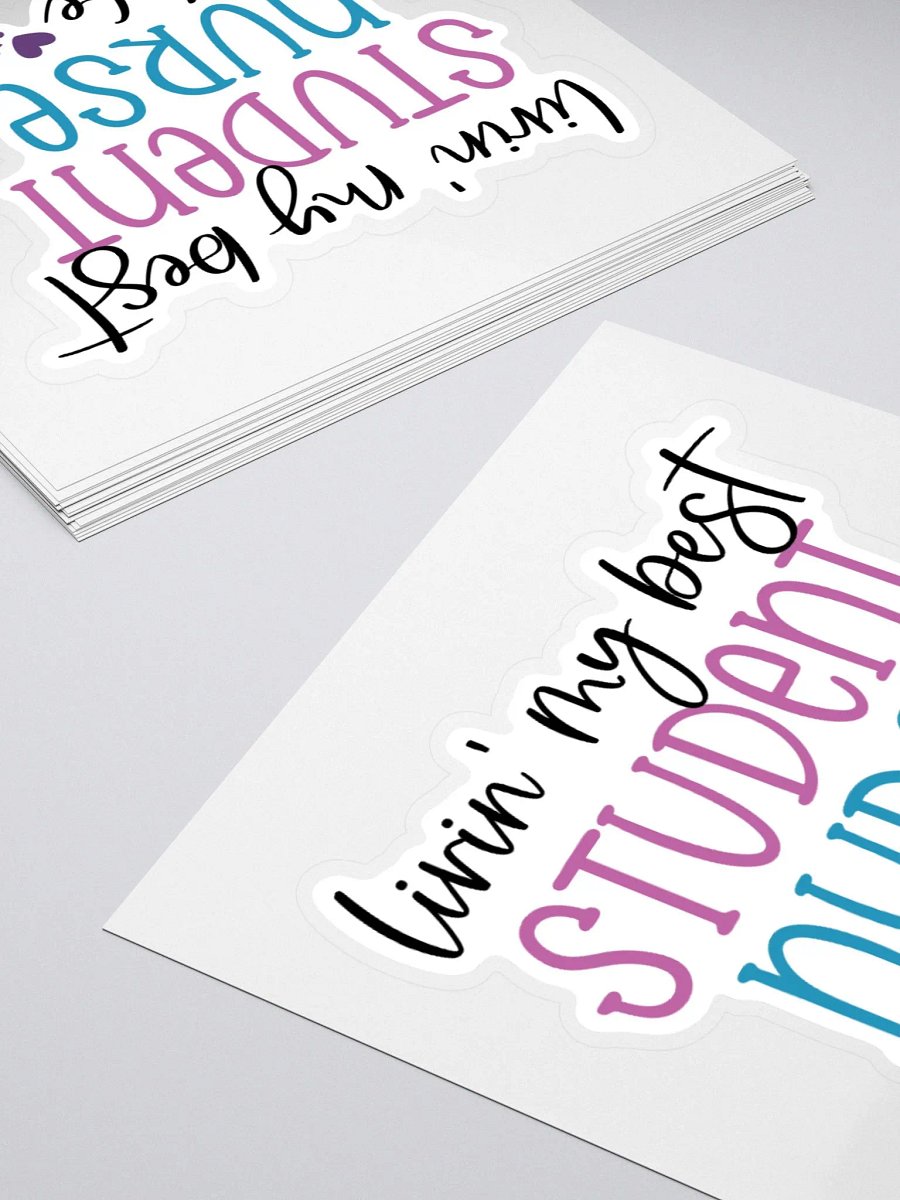 livin' my best
STUDENT
NURSE
livin' my best
STUDENT